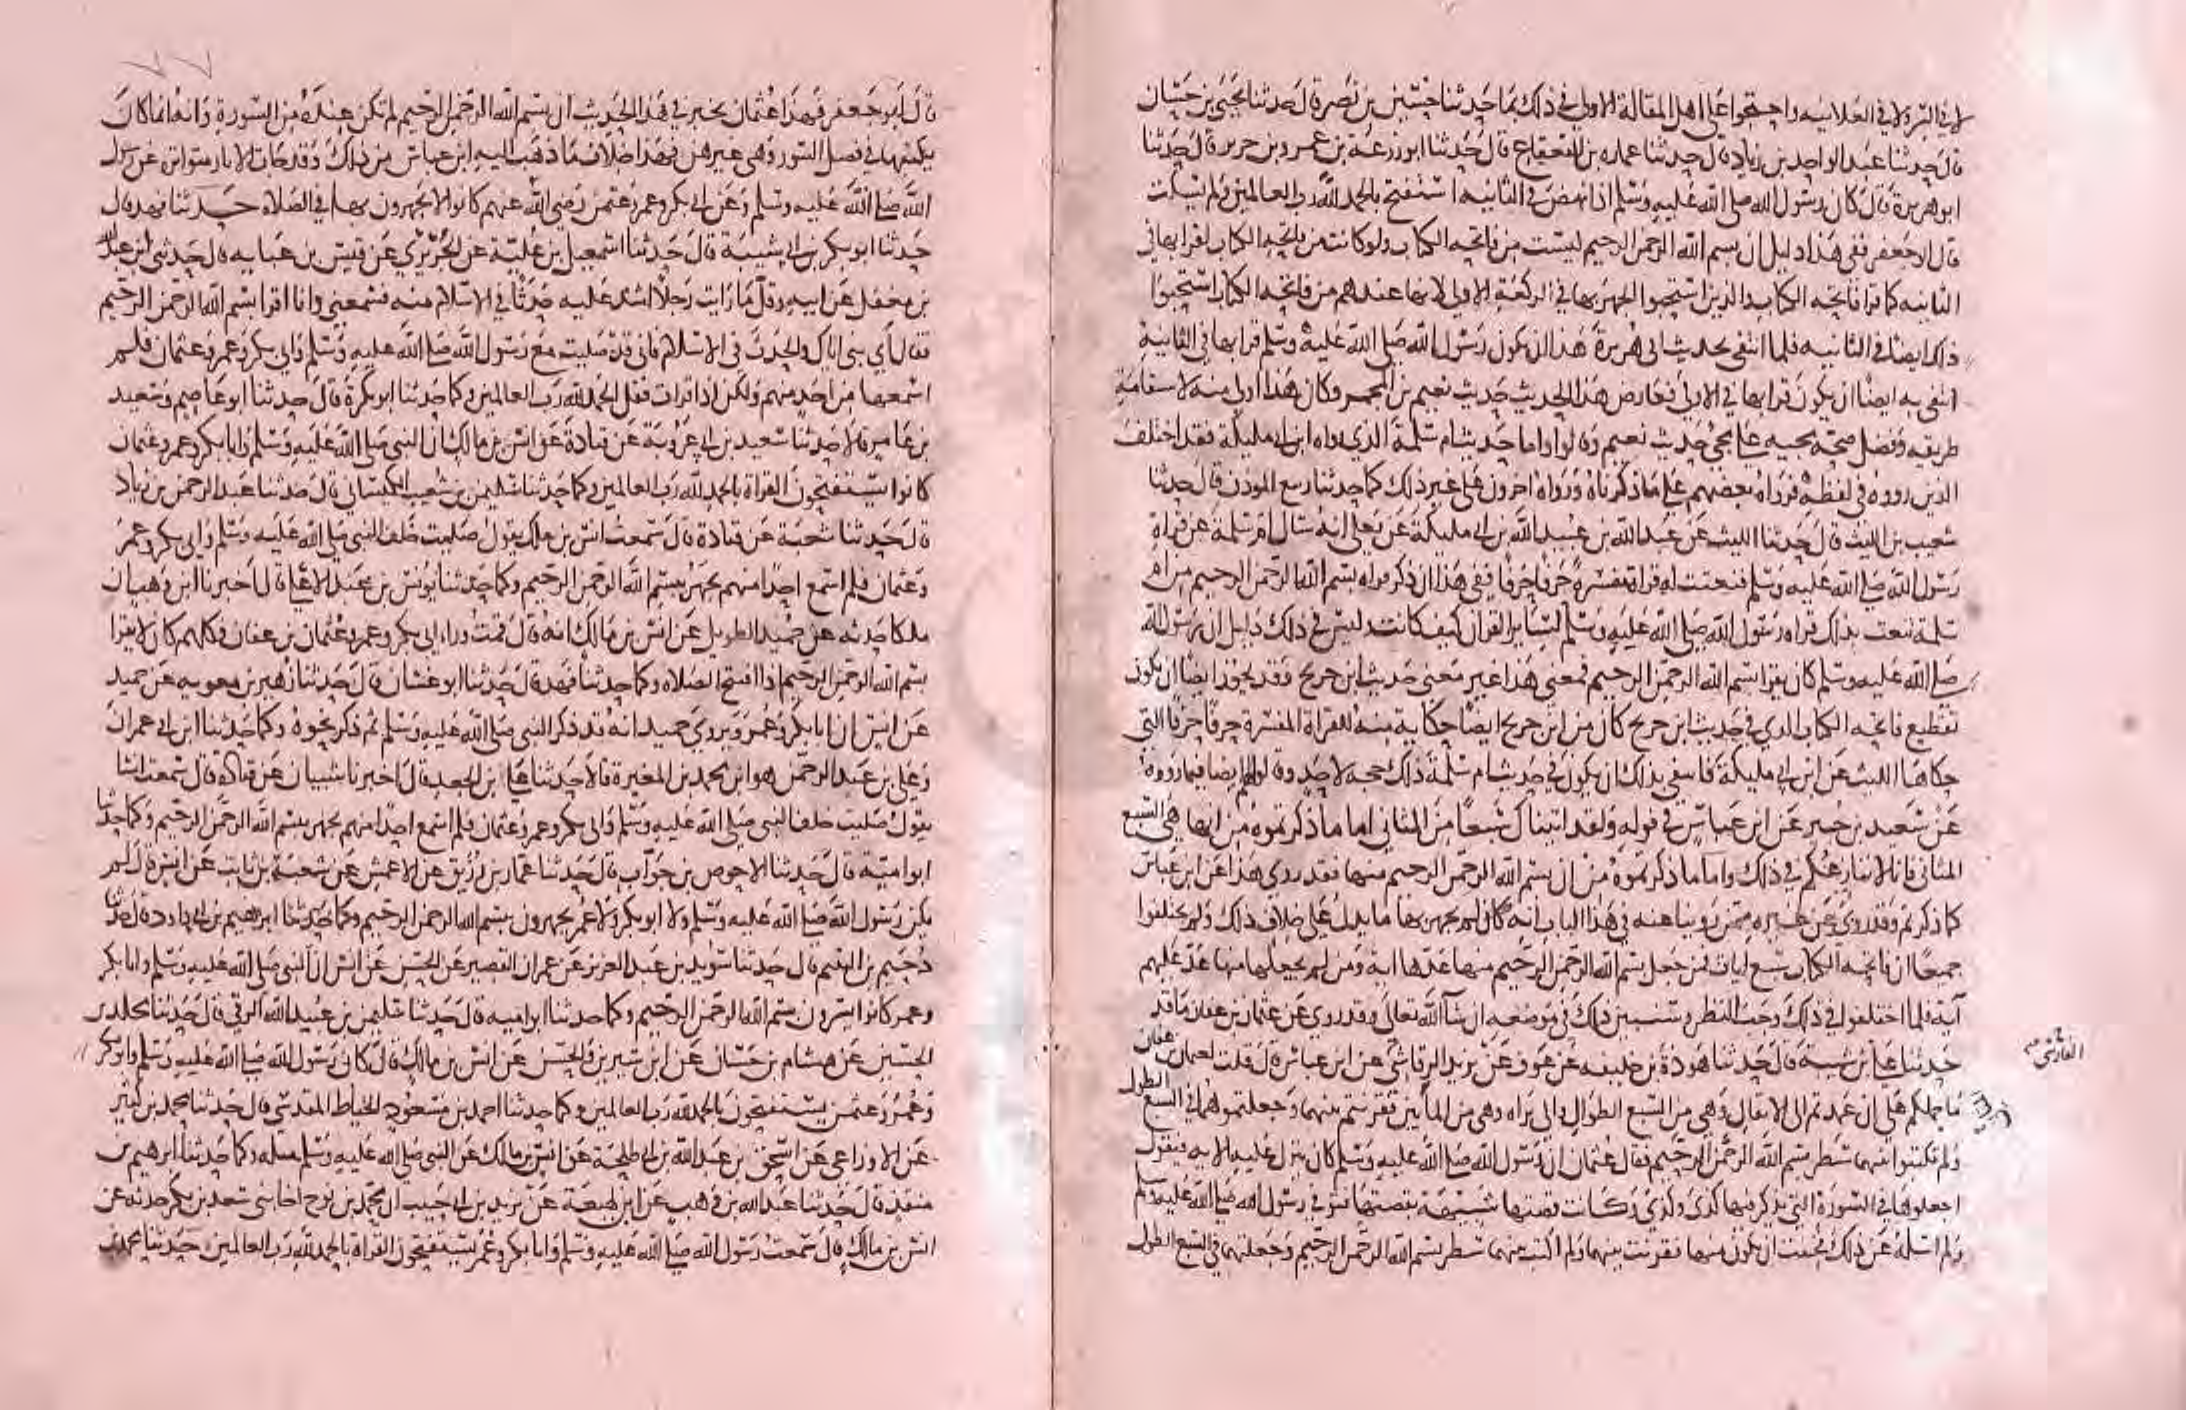 لا في السر ولا في العلانيه واحتجوا على اهل المقالة الاولى في ذلك بما حدثنا حسين بن نصر قال حدثنا يحيى بن حسان
قال حدثنا عبد الواحد بن زياد قال حدثنا عماره بن القعقاع قال حدثنا ابو زرعة بن عمرو بن جرير قال حدثنا
ابو هريرة قال كان رسول الله صلى الله عليه وسلم اذا نهض في الثانيه استفتح بالحمد لله رب العالمين ولم يسكت
قال ابو جعفر ففى هذا دليل ان بسم الله الرحمن الرحيم ليست من فاتحه الكتاب ولو كانت من فاتحه الكتاب لقرا بها في
الثانيه كما قرا فاتحه الكتاب والذين استحبوا الجهر بها في الركعة الاولى لانها عندهم من فاتحه الكتاب استحبوا
ذلك ايضا في الثانيه فلما انتفى بحديث ابى هريرة هذا ان يكون رسول الله صلى الله عليه وسلم قرا بها في الثانية
انتفى به ايضا ان يكون قرا بها في الاولى فعارض هذا الحديث حديث نعيم بن المجمر وكان هذا اولى منه لاستقامة
طريقه وفضل صحة مجيه على مجئ حديث نعيم وقالوا واما حديث ام سلمة الذى رواه ابن ابى مليكة فقد اختلف
الذين رووه في لفظه فرواه بعضهم على ما ذكرناه ورواه اخرون على غير ذلك كما حدثنا ربيع الموذن قال حدثنا
شعيب بن الليث قال حدثنا الليث عن عبد الله بن عبيد الله بن ابى مليكة عن يعلى انه سال ام سلمة عن قراة
رسول الله صلى الله عليه وسلم فنعتت له قراة مفسرة حرفا حرفا ففى هذا ان ذكر قراة بسم الله الرحمن الرحيم من ام
سلمة تنعت بذلك قراه رسول الله صلى الله عليه وسلم لسائر القران كيف كانت وليس في ذلك دليل ان رسول الله
صلى الله عليه وسلم كان يقرا بسم الله الرحمن الرحيم فمعنى هذا غير معنى حديث ابن جريج فقد يجوز ايضا ان يكون
تقطيع فاتحه الكتاب الذي في حديث ابن جريج كان من ابن جريج ايضا حكاية منه للقراة المفسرة حرفا حرفا التي
حكاها الليث عن ابن ابى مليكة فانتفى بذلك ان يكون في حديث ام سلمة ذلك حجه لاحد وقالوا لهم ايضا فيما رووه
عن سعيد بن جبير عن ابن عباس في قوله ولقد اتيناك سبعا من المثاني اما ما ذكرتموه من انها هي السبع
المثاني فانا لا ننازعكم في ذلك واما ما ذكرتموه من ان بسم الله الرحمن الرحيم منها فقد روى هذا عن ابن عباس
كما ذكرتم وقد روي عن غيره ممن روينا عنه في هذا الباب انه كان لم يجهر بها ما يدل على خلاف ذلك ولم يختلفوا
جميعا ان فاتحه الكتاب سبع ايات فمن جعل بسم الله الرحمن الرحيم منها عدها اية ومن لم يجعلها منها عد عليهم
آية فلما اختلفوا في ذلك وجب النظر وسنبين ذلك في موضعه ان شا الله تعالى وقد روي عن عثمان بن عفان ما قد
حدثنا على بن شيبة قال حدثنا هوذة بن خليفه عن عوف عن يزيد الرقاشى عن ابن عباس قال قلت لعثمان بن عفان
الفارسى
ما حملكم على ان عمدتم الى الانفال وهي من السبع الطوال والى براه وهي من المأيين فقرنتم بينهما وجعلتموهما في السبع الطول
ولم تكتبوا بينهما سطر بسم الله الرحمن الرحيم فقال عثمان ان رسول الله صلى الله عليه وسلم كان ينزل عليه الايه فيقول
اجعلوها في السورة التي يذكر فيها كذى وكذى وكانت قصتها شبيهة بقصتها فتوفى رسول الله صلى الله عليه وسلم
ولم اسئله عن ذلك فخفت ان يكون منها فقرنت بينهما ولم اكتب بينهما سطر بسم الله الرحمن الرحيم وجعلتهما في السبع الطول
قال ابو جعفر فهذا عثمان يخبر في هذا الحديث ان بسم الله الرحمن الرحيم لم تكن عنده من السورة وانه انما كان
يكتبها في فصل السور وهي غيرهن فهذا خلاف ما ذهب اليه ابن عباس من ذلك وقد جات الاثار متواتره عن رسول
الله صلى الله عليه وسلم وعن ابى بكر وعمر وعثمن رضى الله عنهم كانوا لا يجهرون بها في الصلاه حدثنا فهد قال
حدثنا ابو بكر بن ابى شيبة قال حدثنا اسمعيل بن علية عن الجريري عن قيس بن عبايه قال حدثنى ابن عبد الله
بن مغفل عن ابيه وقل ما رايت رجلا اشد عليه حدثا في الاسلام منه فسمعنى وانا اقرا بسم الله الرحمن الرحيم
فقال أي بنى اياك والحدث فى الاسلام فانى قد صليت مع رسول الله صلى الله عليه وسلم وابى بكر وعمر وعثمان فلم
اسمعها من احد منهم ولكن اذا قرات فقل الحمد لله رب العالمين وكما حدثنا ابو بكرة قال حدثنا ابو عاصم وسعيد
بن عامر قالا حدثنا سعيد بن ابى عروبة عن قتادة عن انس بن مالك ان النبى صلى الله عليه وسلم وابا بكر وعمر وعثمان
كانوا يستفتحون القراة بالحمد لله رب العالمين وكما حدثنا سليمن بن شعيب الكيسانى قال حدثنا عبد الرحمن بن زياد
قال حدثنا شعبة عن قتادة قال سمعت انس بن ملك يقول صليت خلف النبى صلى الله عليه وسلم وابى بكر وعمر
وعثمان فلم اسمع احدا منهم يجهر ببسم الله الرحمن الرحيم وكما حدثنا يونس بن عبد الاعلى قال اخبرنا ابن وهب ان
ملكا حدثه عن حميد الطويل عن انس بن مالك انه قال قمت وراء ابى بكر وعمر وعثمان بن عفان فكلهم كان لا يقرا
بسم الله الرحمن الرحيم اذا افتتح الصلاه وكما حدثنا فهد قال حدثنا ابو غسان قال حدثنا زهير بن معويه عن حميد
عن انس ان ابا بكر وعمر ويروي حميد انه قد ذكر النبى صلى الله عليه وسلم ثم ذكر نحوه وكما حدثنا ابن ابى عمران
وعلى بن عبد الرحمن هو ابن محمد بن المغيرة قالا حدثنا على ابن الجعد قال اخبرنا شيبان عن قتادة قال سمعت انسا
يقول صليت خلف النبى صلى الله عليه وسلم وابى بكر وعمر وعثمان فلم اسمع احدا منهم يجهر ببسم الله الرحمن الرحيم وكما حدثنا
ابو امية قال حدثنا الاحوص بن جواب قال حدثنا عمار بن رزيق عن الاعمش عن شعبة بن ثابت عن انس قال لم
يكن رسول الله صلى الله عليه وسلم ولا ابو بكر ولا عمر يجهرون ببسم الله الرحمن الرحيم وكما حدثنا ابرهيم بن ابى داود قال حدثنا
دحيم بن اليتيم قال حدثنا سويد بن عبد العزيز عن عمران القصير عن الحسن عن انس ان النبى صلى الله عليه وسلم وابا بكر
وعمر كانوا يسرون ببسم الله الرحمن الرحيم وكما حدثنا ابو اميه قال حدثنا سليمن بن عبيد الله الرقى قال حدثنا مخلد بن
الحسين عن هشام بن حسان عن ابن سيرين والحسن عن انس بن مالك قال كان رسول الله صلى الله عليه وسلم وابو بكر
وعمر وعثمن يستفتحون بالحمد لله رب العالمين وكما حدثنا احمد بن مسعود الخياط المقدسي قال حدثنا محمد بن كثير
عن الاوزاعى عن اسحق بن عبد الله بن ابى طلحة عن انس بن مالك عن النبى صلى الله عليه وسلم مثله وكما حدثنا ابرهيم بن
منقذ قال حدثنا عبد الله بن وهب عن ابن لهيعة عن يزيد بن ابى حبيب ان محمد بن نوح اخا بنى سعد بن بكر حدثه عن
انس بن مالك قال سمعت رسول الله صلى الله عليه وسلم وابا بكر وعمر يستفتحون القراة بالحمد لله رب العالمين حدثنا محمد بن